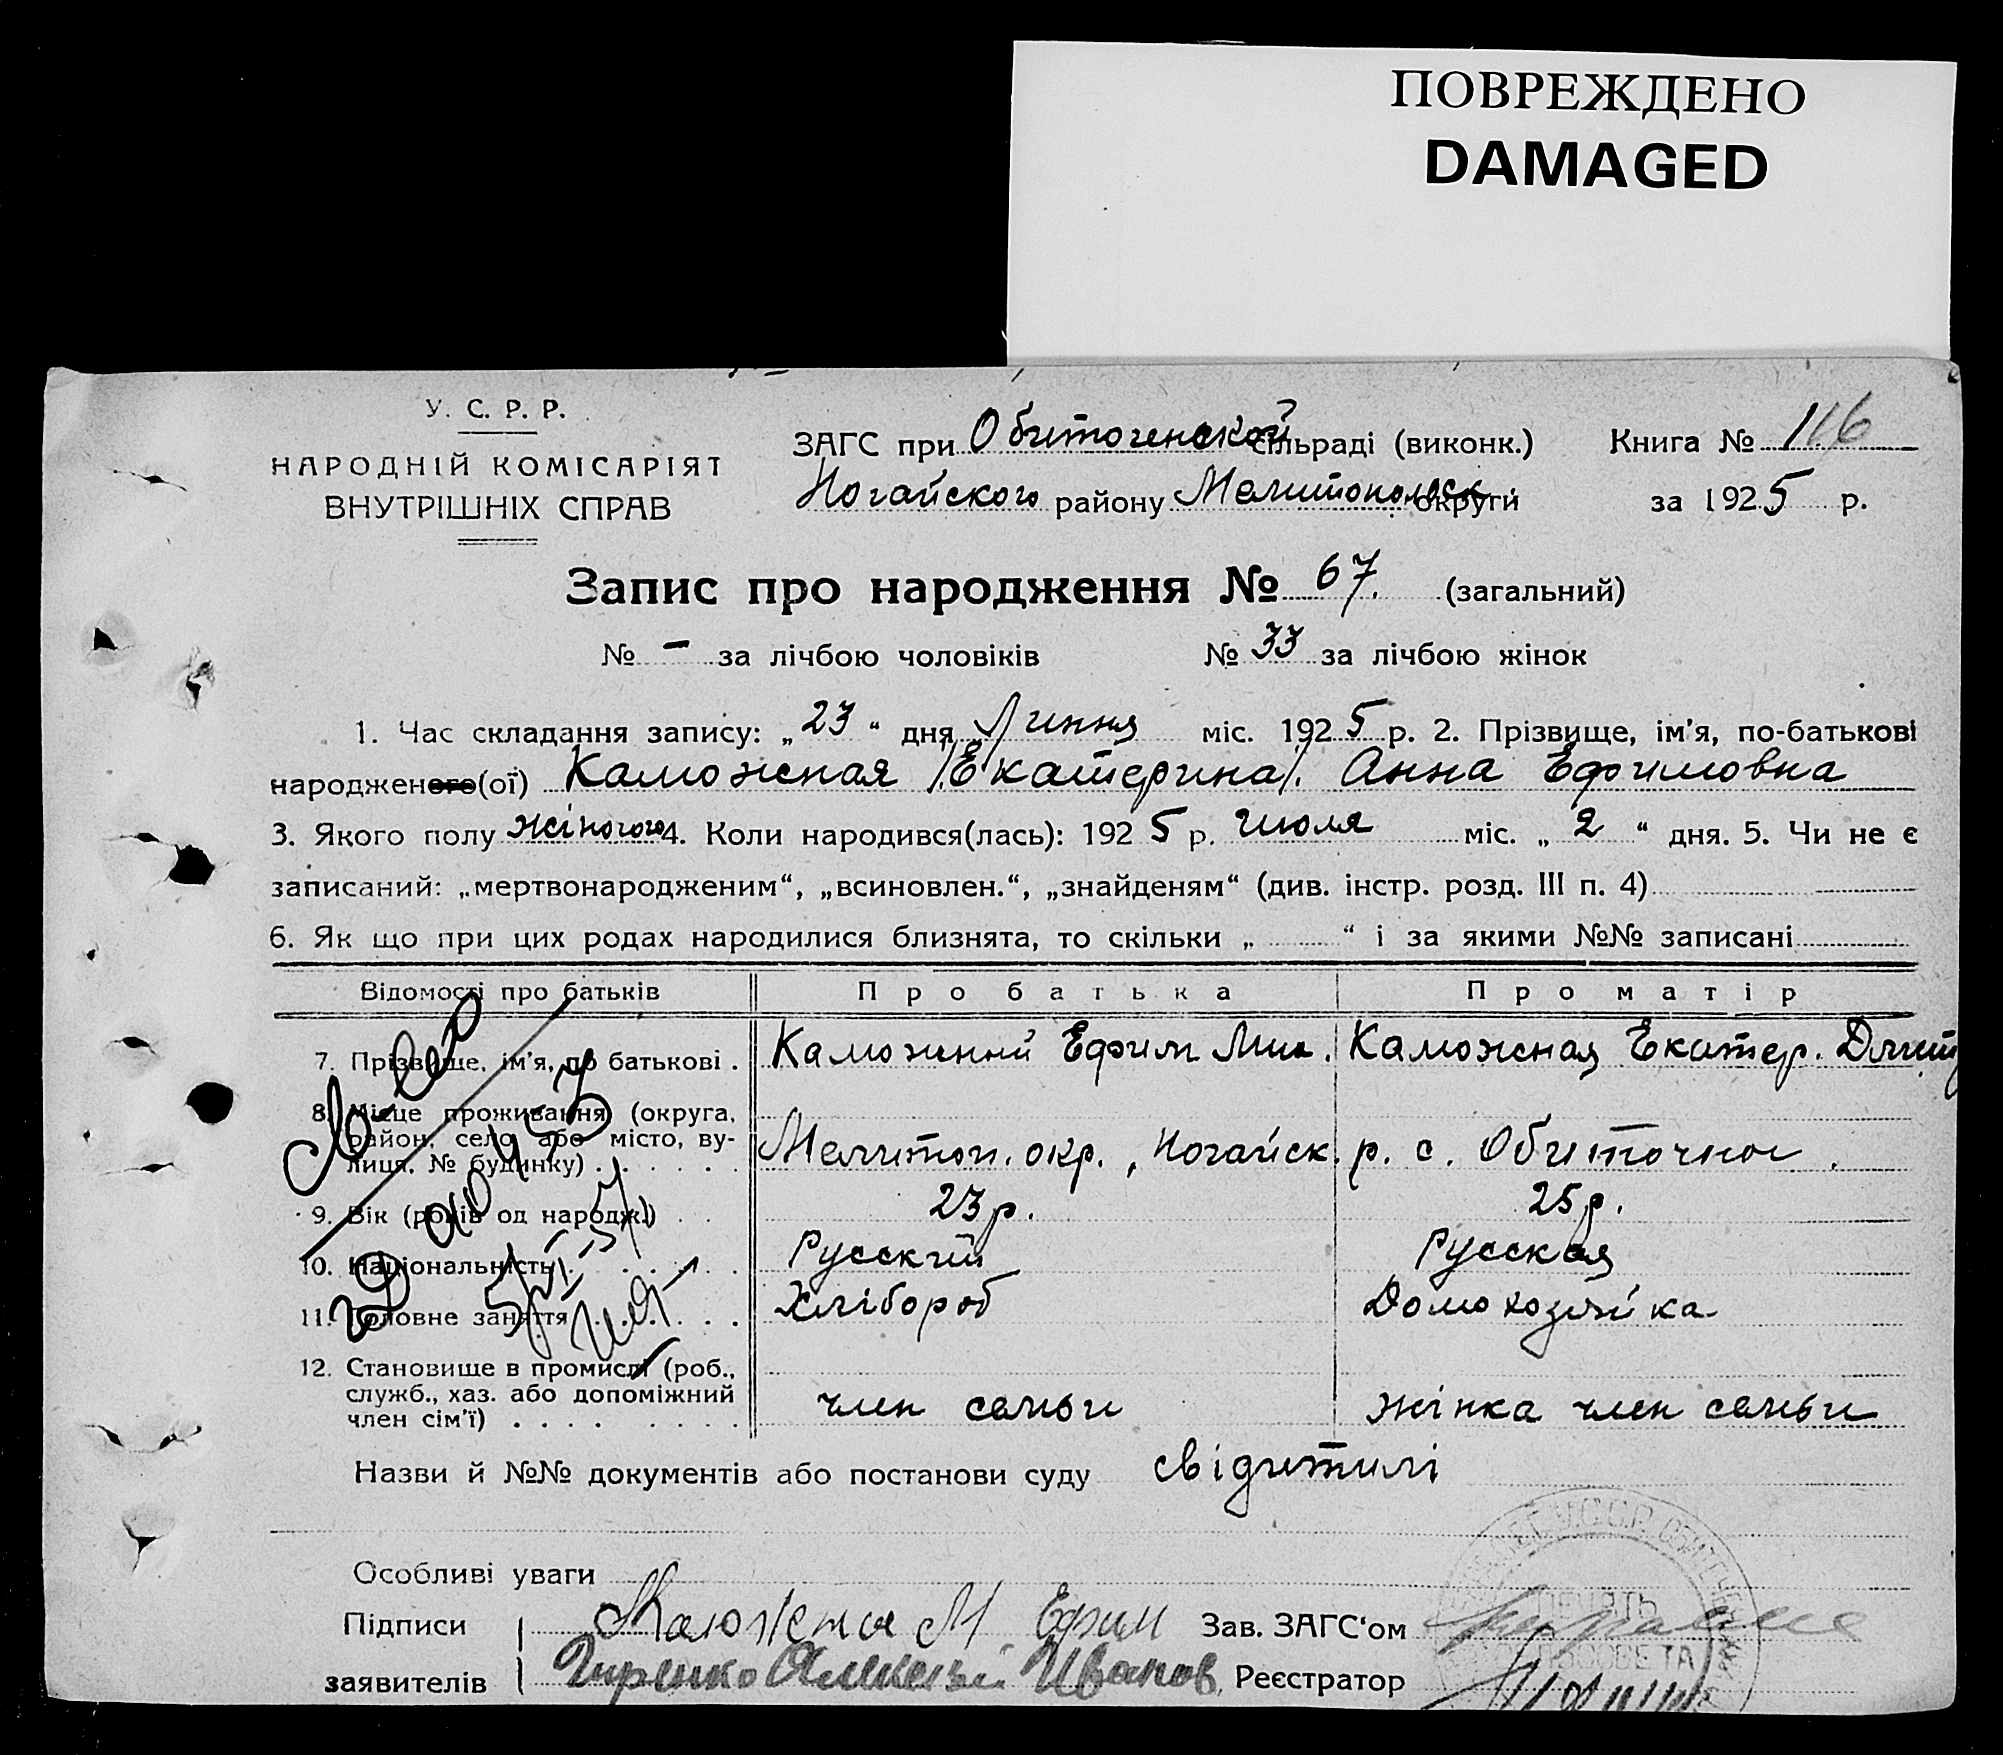 ПОВРЕЖДЕНО
DAMAGED
У. С. Р. Р.
НАРОДНІЙ КОМІСАРІЯТ
ВНУТРІШНІХ СПРАВ
ЗАГС при Обиточенской сільраді (виконк.) Книга № 116
Ногайского району Мелитопольск. округи за 1925 р.
Запис про народження № 67. (загальний)
№ - за лічбою чоловіків № 33 за лічбою жінок
1. Час складання запису: „23“ дня Липня міс. 1925 р. 2. Прізвище, ім'я, по-батькові
народженого(ої) Каможная /Екатерина/. Анна Ефимовна
3. Якого полу жіночого 4. Коли народився(лась): 1925 р. Июля міс. „2“ дня. 5. Чи не є
записаний: „мертвонародженим“, „всиновлен.“, „знайденям“ (див. інстр. розд. III п. 4)
6. Як що при цих родах народилися близнята, то скільки „ “ і за якими №№ записані
Відомості про батьків Про батька Про матір
7. Прізвище, ім'я, по батькові . Каможний Ефим Мих. Каможная Екатер. Дмит
8. Місце проживання (округа,
район, село або місто, ву-
лиця, № будинку) . . . . . . Мелитоп. окр., Ногайск. р. с. Обиточное.
9. Вік (років од народж.) . . 23 р. 25 р.
10. Національність . . . . . . Русский Русская
11. Головне заняття . . . . . Хлібороб Домохозяйка
12. Становище в промислі (роб.,
служб., хаз. або допоміжний
член сім'ї) . . . . . . . . . член семьи жінка член семьи
Назви й №№ документів або постанови суду свідитилі
Особливі уваги
Підписи Каможная М Ефим Зав. ЗАГС'ом
заявителів Гиренко Алексей Иванов. Реєстратор